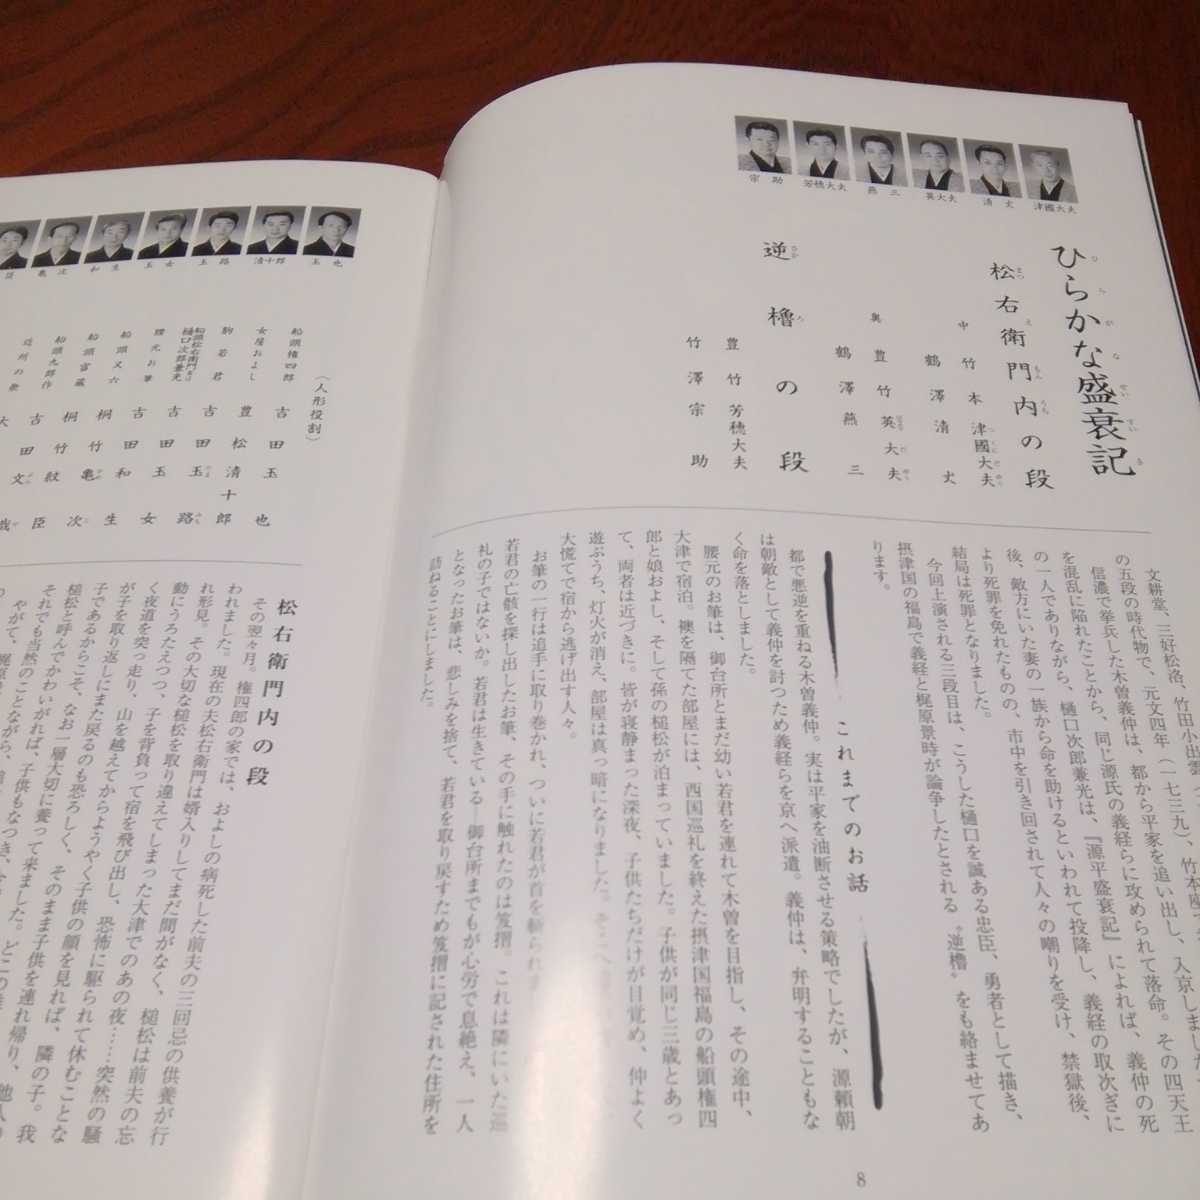 津國大夫
清𠀋
英大夫
燕三
芳穂大夫
宗助
ひらかな盛衰記
松右衛門内の段
中 竹本津國大夫
鶴澤清𠀋
奥 豊竹英大夫
鶴澤燕三
逆櫓の段
豊竹芳穂大夫
竹澤宗助
文耕堂、三好松洛、竹田小出雲
の五段の時代物で、元文四年(一七三九)、竹本座
信濃で挙兵した木曽義仲は、都から平家を追い出し、入京しました
を混乱に陥れたことから、同じ源氏の義経らに攻められて落命。その四天王
の一人でありながら、樋口次郎兼光は、『源平盛衰記』によれば、義仲の死
後、敵方にいた妻の一族から命を助けるといわれて投降し、義経の取次ぎに
より死罪を免れたものの、市中を引き回されて人々の嘲りを受け、禁獄後、
結局は死罪となりました。
今回上演される三段目は、こうした樋口を誠ある忠臣、勇者として描き、
摂津国の福島で義経と梶原景時が論争したとされる〝逆櫓〟をも絡ませてあ
ります。
これまでのお話
都で悪逆を重ねる木曽義仲。実は平家を油断させる策略でしたが、源頼朝
は朝敵として義仲を討つため義経らを京へ派遣。義仲は、弁明することもな
く命を落としました。
腰元のお筆は、御台所とまだ幼い若君を連れて木曽を目指し、その途中、
大津で宿泊。襖を隔てた部屋には、西国巡礼を終えた摂津国福島の船頭権四
郎と娘およし、そして孫の槌松が泊まっていました。子供が同じ三歳とあっ
て、両者は近づきに。皆が寝静まった深夜、子供たちだけが目覚め、仲よく
遊ぶうち、灯火が消え、部屋は真っ暗になりました。そこへ
大慌てで宿から逃げ出す人々。
お筆の一行は追手に取り巻かれ、ついに若君が首を斬られ
若君の亡骸を探し出したお筆、その手に触れたのは笈摺。これは隣にいた巡
礼の子ではないか。若君は生きている―御台所までもが心労で息絶え、一人
となったお筆は、悲しみを捨て、若君を取り戻すため笈摺に記された住所を
訪ねることにしました。
8
玉也
清十郎
玉路
玉女
和生
亀次
(人形役割)
船頭権四郎 吉田玉也
女房およし 豊松清十郎
駒若君 吉田玉路
船頭松右衛門実は樋口次郎兼光 吉田玉女
腰元お筆 吉田和生
船頭又六 桐竹亀次
船頭富蔵 桐竹紋臣
船頭九郎作 吉田文哉
近所の衆 大
松右衛門内の段
その翌々月。権四郎の家では、およしの病死した前夫の三回忌の供養が行
われました。現在の夫松右衛門は婿入りしてまだ間がなく、槌松は前夫の忘
れ形見。その大切な槌松を取り違えてしまった大津でのあの夜……突然の騒
動にうろたえつつ、子を背負って宿を飛び出し、恐怖に駆られて休むことな
く夜道を突っ走り、山を越えてからようやく子供の顔を見れば、隣の子。我
が子を取り返しにまた戻るのも恐ろしく、そのまま子供を連れ帰り、
子であるからこそ、なお一層大切に養って来ました。どこの
槌松と呼んでかわいがれば、子供もなつき、
それでも当然のことながら、
やがて、梶原